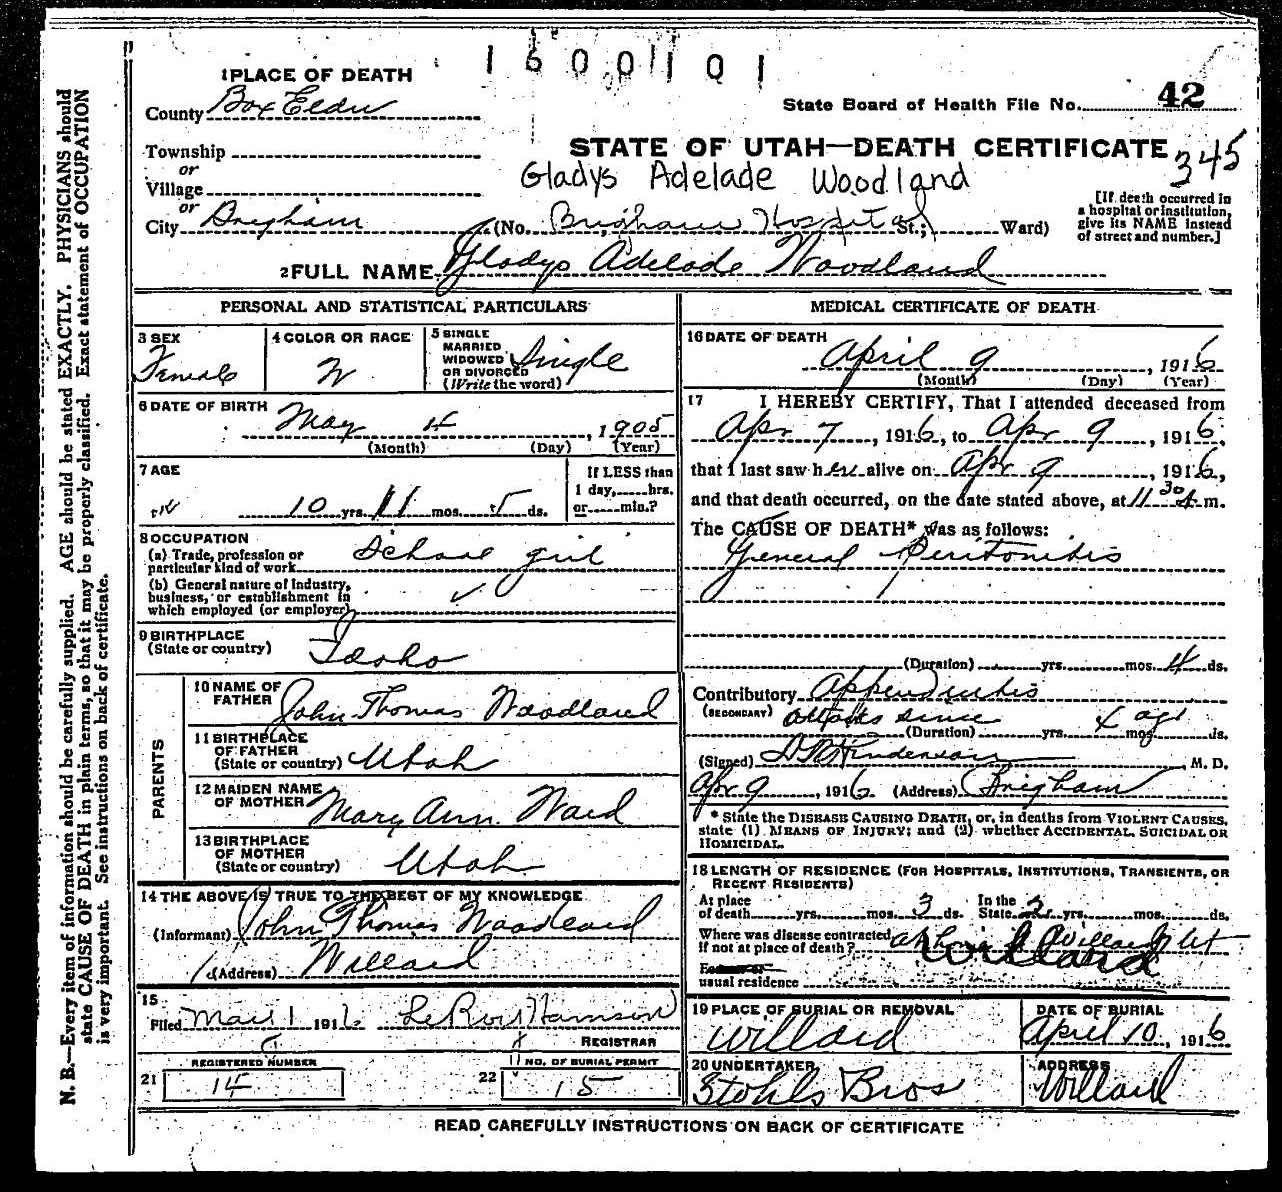 1600101
1 PLACE OF DEATH
County Box Elder
State Board of Health File No. 42
Township
or
Village
or
STATE OF UTAH—DEATH CERTIFICATE 345
Gladys Adelade Woodland
City Brigham (No. Brigham Hospital St.; Ward)
[If death occurred in
a hospital or institution,
give its NAME instead
of street and number.]
2 FULL NAME Gladys Adelade Woodland
PERSONAL AND STATISTICAL PARTICULARS
3 SEX
Female
4 COLOR OR RACE
W
5 SINGLE
MARRIED
WIDOWED
OR DIVORCED
(Write the word)
Single
6 DATE OF BIRTH
May 4, 1905
(Month) (Day) (Year)
7 AGE
10 yrs. 11 mos. 5 ds.
If LESS than
1 day, hrs.
or min.?
8 OCCUPATION
(a) Trade, profession or
particular kind of work School girl
(b) General nature of Industry,
business, or establishment in
which employed (or employer)
9 BIRTHPLACE
(State or country) Idaho
PARENTS
10 NAME OF
FATHER John Thomas Woodland
11 BIRTHPLACE
OF FATHER
(State or country) Utah
12 MAIDEN NAME
OF MOTHER Mary Ann Ward
13 BIRTHPLACE
OF MOTHER
(State or country) Utah
14 THE ABOVE IS TRUE TO THE BEST OF MY KNOWLEDGE
(Informant) John Thomas Woodland
(Address) Willard
15
Filed May 1 1916 LeRoi Harrison
REGISTRAR
REGISTERED NUMBER
21 14
NO. OF BURIAL PERMIT
22 15
MEDICAL CERTIFICATE OF DEATH
16 DATE OF DEATH
April 9, 1916
(Month) (Day) (Year)
17 I HEREBY CERTIFY, That I attended deceased from
Apr 7, 1916, to Apr 9, 1916,
that I last saw her alive on Apr 9, 1916,
and that death occurred, on the date stated above, at 11 30 A m.
The CAUSE OF DEATH* was as follows:
General Peritonitis
(Duration) yrs. mos. 4 ds.
Contributory Appendicitis
(SECONDARY) attacks since 4 ago
(Duration) yrs. mos. ds.
(Signed) M. D.
Apr 9, 1916 (Address) Brigham
* State the DISEASE CAUSING DEATH, or, in deaths from VIOLENT CAUSES,
state (1) MEANS OF INJURY; and (2) whether ACCIDENTAL, SUICIDAL OR
HOMICIDAL.
18 LENGTH OF RESIDENCE (FOR HOSPITALS, INSTITUTIONS, TRANSIENTS, OR
RECENT RESIDENTS)
At place
of death yrs. mos. 3 ds.
In the
State yrs. mos. ds.
Where was disease contracted
if not at place of death? Willard Ut
Willard
usual residence
19 PLACE OF BURIAL OR REMOVAL
Willard
DATE OF BURIAL
April 10, 1916
20 UNDERTAKER
Stohls Bros
ADDRESS
Willard
READ CAREFULLY INSTRUCTIONS ON BACK OF CERTIFICATE
N. B.—Every item of information should be carefully supplied. AGE should be stated EXACTLY. PHYSICIANS should
state CAUSE OF DEATH in plain terms, so that it may be properly classified. Exact statement of OCCUPATION
is very important. See instructions on back of certificate.